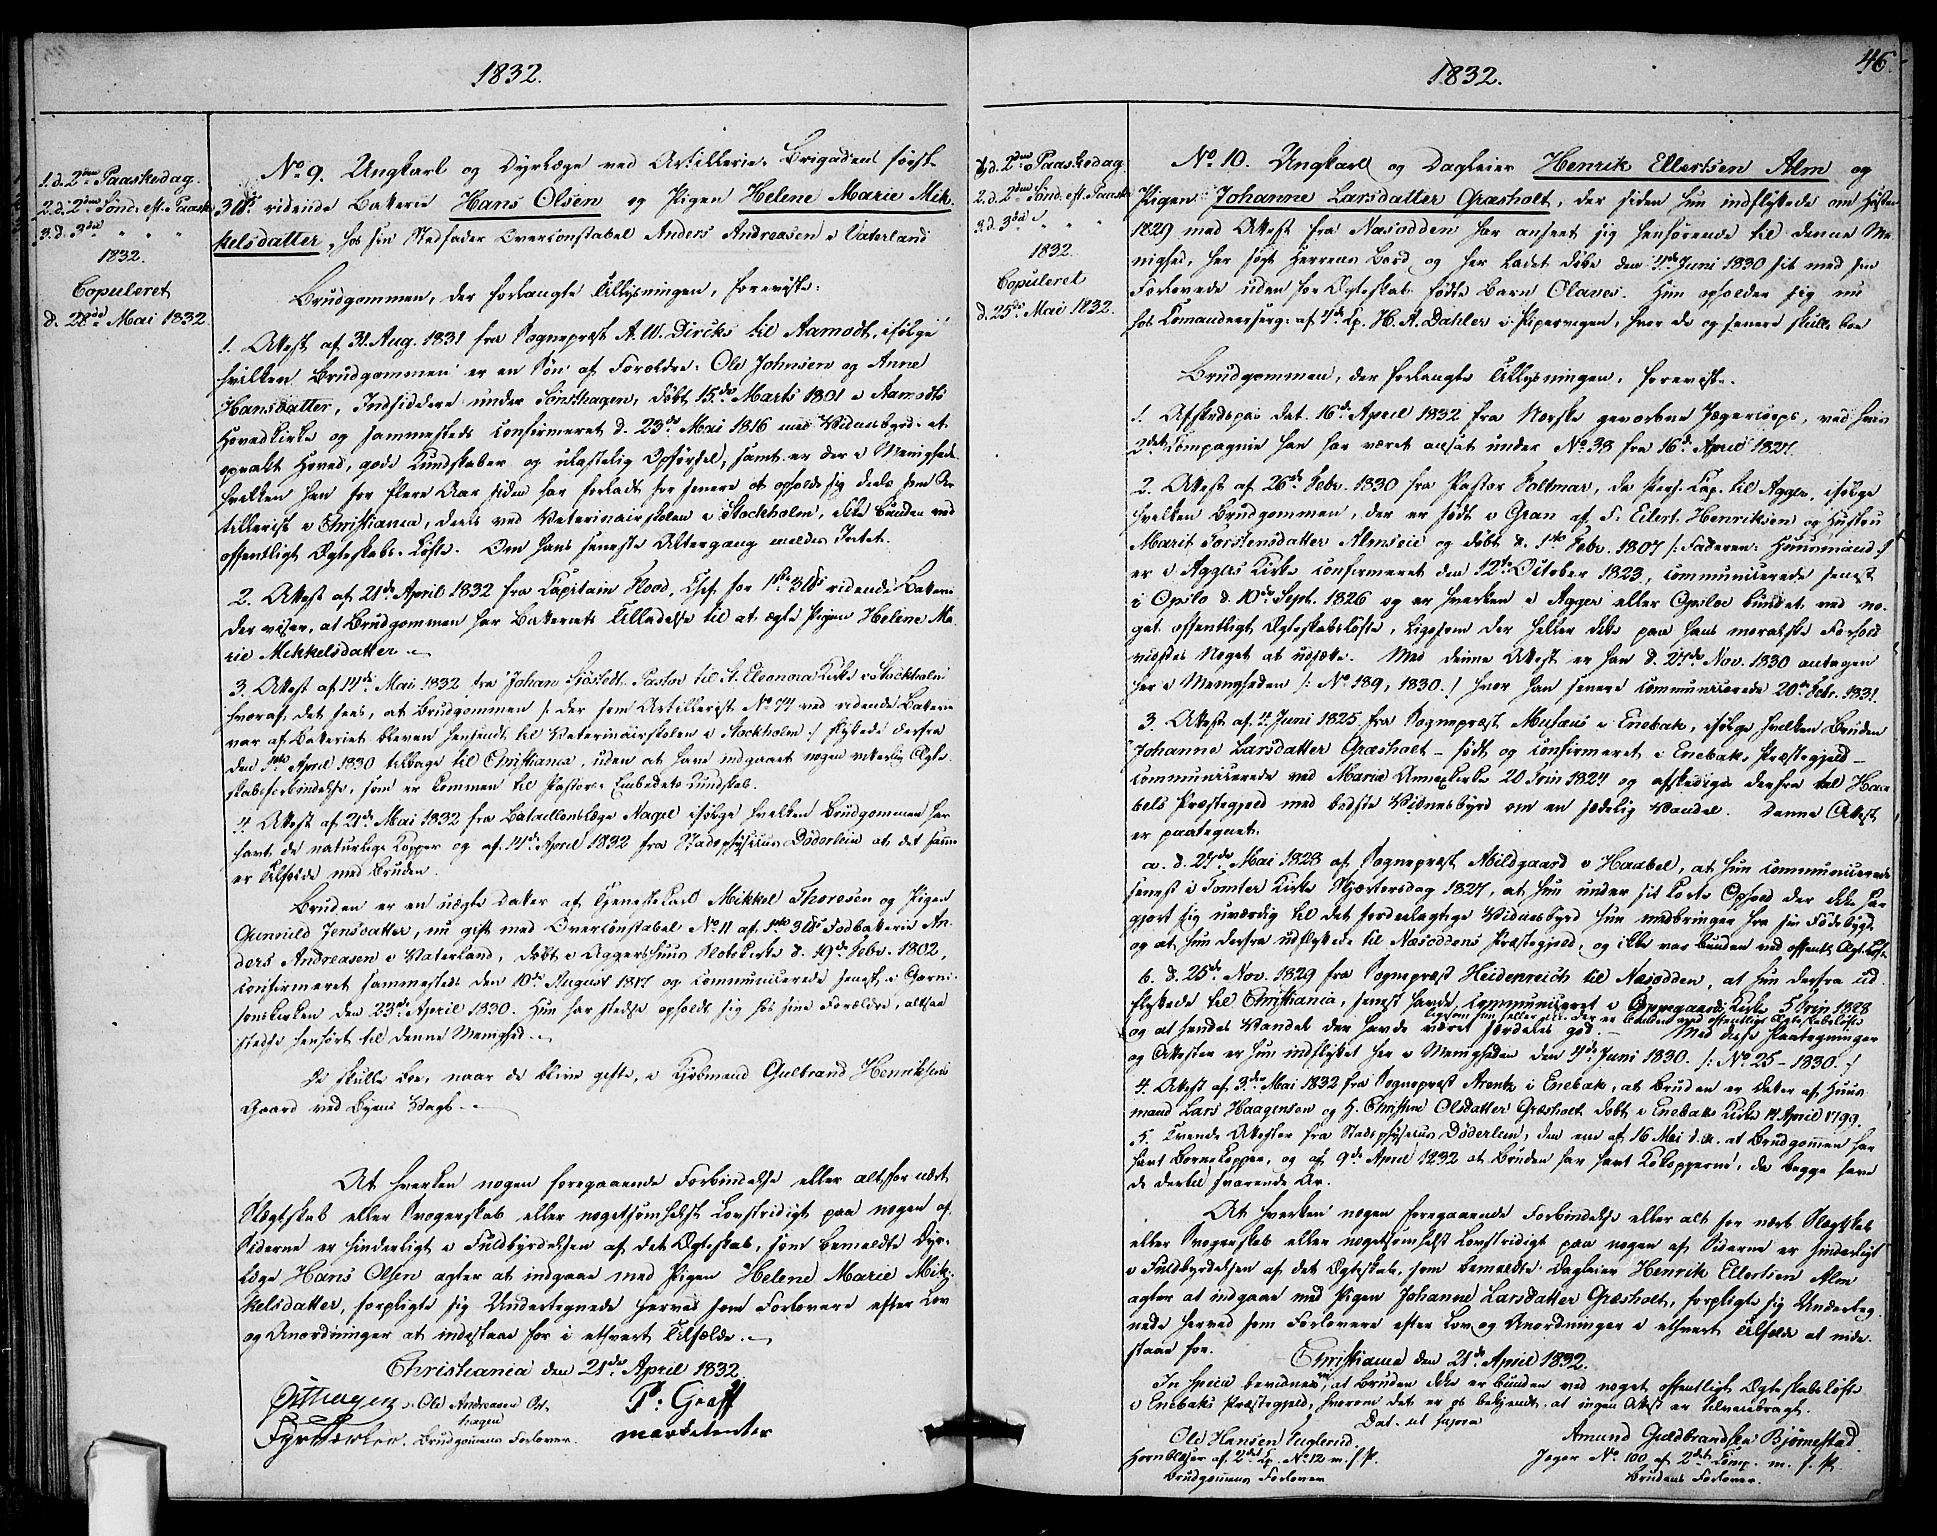 1832.
1. d. 2den Paaskedag.
2. d. 2den Sönd. eft. Paaske
3. d. 3die " " "
1832.
Copuleret
d. 28de Mai 1832.
No 9. Ungkarl og Dyrlæge ved Artillerie-Brigadens första
3 ridende Batterie Hans Olsen og Pigen Helene Marie Mik-
kelsdatter, hos sin Stedfader Overconstabel Anders Andreasen i Vaterland
Brudgommen, der forlangte Tillysningen, foreviste:
1. Attest af 31. Aug. 1831 fra Sognepræst A. W. Dircks til Aamodt, ifölge
hvilken Brudgommen er en Sön af Forældre: Ole Johnsen og Anne
Hansdatter, Indsiddere under Sönsthagen, döbt 15de Marts 1801 i Aamodts
Hovedkirke og sammesteds confirmeret d. 23de Mai 1816 med Vidnesbyrd: et
opvakt Hoved, gode Kundskaber og ulastelig Opförsel, samt er der i Menighed
hvilken han for flere Aar siden har forladt for senere at opholde sig deels som Ar-
tillerist i Christiania, deels ved Veterinairskolen i Stockholm, ikke bunden ved
offentligt Ægteskabs-Löfte. Om hans seneste Altergang meldes Intet.
2. Attest af 21de April 1832 fra Capitain Flood, Chef for 1ste ridende Batteri
der viser, at Brudgommen har Batteriets Tilladelse til at ægte Pigen Helene Ma-
rie Mikkelsdatter.
3. Attest af 14de Mai 1832 fra Johan Sjöstedt Pastor til St. Eleonora Kirke i Stockholm
hvoraf det sees, at Brudgommen /: der som Artillerist No 77 ved ridende Batterie
var af Batteriet bleven hensendt til Veterinairskolen i Stockholm :/ flyttede derfra
den 1ste April 1830 tilbage til Christiania, uden at have indgaaet nogen viterlig Ægte-
skabsforbindelse, som er kommen til Pastors-Embedets Kundskab.
4. Attest af 21de Mai 1832 fra Bataillonslæge Nagel ifölge hvilken Brudgommen har
havt de naturlige Kopper og af 14de April 1832 fra Stadsphysicus Döderlein at det samme
er Tilfælde med Bruden.
Bruden er en uægte Datter af Tjenestekarl Mikkel Thoresen og Pigen
Gunnild Jensdatter, nu gift med Overconstabel No 11 af 1ste Fodbatterie An-
ders Andreasen i Vaterland, döbt i Aggershuus Slotskirke d. 19de Febr. 1802,
confirmeret sammesteds den 10de August 1817 og communicerede senest i Garni-
sonskirken den 23de April 1830. Hun har stedse opholdt sig hos sine Forældre, altsaa
stedse henhört til denne Menighed.
De skulle boe, naar de blive gifte, i Kjöbmand Gulbrand Henriksens
Gaard ved Byens Vagt.
At hverken nogen foregaaende Forbindelse eller altfor nært
Slægtskab eller Svogerskab eller nogetsomhelst Lovstridigt paa nogen af
Siderne er hinderligt i Fuldbyrdelsen af det Ægteskab, som bemeldte Dyr-
læge Hans Olsen agter at indgaae med Pigen Helene Marie Mik-
kelsdatter, forpligte sig Undertegnede herved som Forlovere efter Lov
og Anordninger at indestaae for i ethvert Tilfælde.
Christiania den 21de April 1832.
Ole Andreasen Öst-
hagen
Brudgommens Forlover.
P. Graff
marketenter
1832.
46.
1. d. 2den Paaskedag
2. d. 2den Sönd. eft. Paaske
3. d. 3die " "
1832.
Copuleret
d. 25de Mai 1832.
No 10. Ungkarl og Dagleier Henrik Ellertsen Alm og
Pigen Johanne Larsdatter Græsholt, der siden hun indflyttede om Hösten
1829 med Attest fra Næsodden har anseet sig henhörende til denne Me-
nighed, her sögt Herrens Bord og her ladet döbe den 4de Juni 1830 sit med sin
Forlovede uden for Ægteskab födte Barn Olaves. Hun opholder sig nu
hos Comandeersergt. af 4de Cp. H. A. Dahler i Pipervigen, hvor de og senere skulle boe
Brudgommen, der forlangte Tillysningen, foreviste.
1. Afskedspas dat. 16de April 1832 fra Norske gevorbne Jægercorps, ved hvis
2det Compagnie han har været ansat under No 38 fra 16de April 1827.
2. Attest af 26de Febr. 1830 fra Pastor Foltmar, da Pers. Cap. til Agger, ifölge
hvilken Brudgommen, der er födt i Gran af F. Eilert Henriksen og Hustru
Marit Torstensdatter Almseie og döbt d. 1ste Febr. 1807 /: Faderen: Huusmand :/
er i Aggers Kirke confirmeret den 12te October 1823, communicerede senest
i Opslo d. 10de Sept. 1826 og er hverken i Agger eller Opsloe bundet ved no-
get offentligt Ægteskabslöfte, ligesom der heller ikke paa hans moralske Forhold
vidstes Noget at udsætte. Med denne Attest er han d. 27de Nov. 1830 antagen
her i Menigheden /: No 189, 1830. :/ hvor han senere communicerede 20de Febr. 1831.
3. Attest af 4. Juni 1825 fra Sognepræst Musæus i Enebak, ifölge hvilken Bruden
Johanne Larsdatter Græsholt – födt og confirmeret i Enebaks Præstegjeld –
communicerede ved Mariæ Annexkirke 20 Trin 1824 og afskediges derfra til Haa-
böls Præstegjeld med bedste Vidnesbyrd om en sædelig Vandel. Denne Attest
er paategnet.
a. d. 27de Mai 1828 af Sognepræst Abildgaard i Haaböl, at hun communicerede
senest i Tomter Kirke Skjærtorsdag 1827, at hun under sit korte Ophold der ikke har
gjort sig uværdig til det fordeelagtige Vidnesbyrd hun medbringer fra sin Födebygd
og at hun derfra udflyttede til Næsoddens Præstegjeld, og ikke var bunden ved offentl. Ægt. Löfte
b. d. 25de Nov. 1829 fra Sognepræst Heidenreich til Næsodden, at hun derfra ud-
flyttede til Christiania, senest havde communiceret i Oppegaards Kirke 5 Trin. 1828
og at hendes Vandel der havde været særdeles god.
ligesom hun heller ikke der er bunden ved offentligt Ægteskabslöfte
Med disse Paategninger
og Attester er hun indflyttet her i Menigheden den 4de Juni 1830. /: No 25 – 1830. :/
4. Attest af 3die Mai 1832 fra Sognepræst Arentz i Enebak, at Bruden er Datter af Huus-
mand Lars Haagensen og H. Christine Olsdatter Græsholt döbt i Enebaks Kirke 14 April 1799.
5. Tvende Attester fra Stadsphysicus Döderlein, den ene af 16 Mai d. A. at Brudgommen har
havt Börnekopper, og af 9de April 1832 at Bruden har havt Kokopperne, da begge have
de dertil svarende Ar.
At hverken nogen foregaaende Forbindelse eller alt for nært Slægtskab
eller Svogerskab eller nogetsomhelst Lovstridigt paa nogen af Siderne er hinderligt
i Fuldbyrdelsen af det Ægteskab, som bemeldte Dagleier Henrik Ellertsen Alm
agter at indgaae med Pigen Johanne Larsdatter Græsholt, forpligte sig Underteg-
nede herved som Forlovere efter Lov og Anordninger i ethvert Tilfælde at inde-
staae for.
Christiania den 21de April 1832.
In specie bevidnes, at Bruden ikke er bunden ved noget offentligt Ægteskabslöfte
i Enebaks Præstegjeld, hvorom det er os bekjendt at ingen Attest er tilveiebragt.
Dat. ut supra
Ole Hansen Fuglerud.
Hornblæser af 2det Cp. No 12 m. f. P.
Brudgommens Forlover
Amund Guldbrandsen Björnestad.
Jeger No 100 af 2det Comp. m. f. P.
Brudens Forlover.